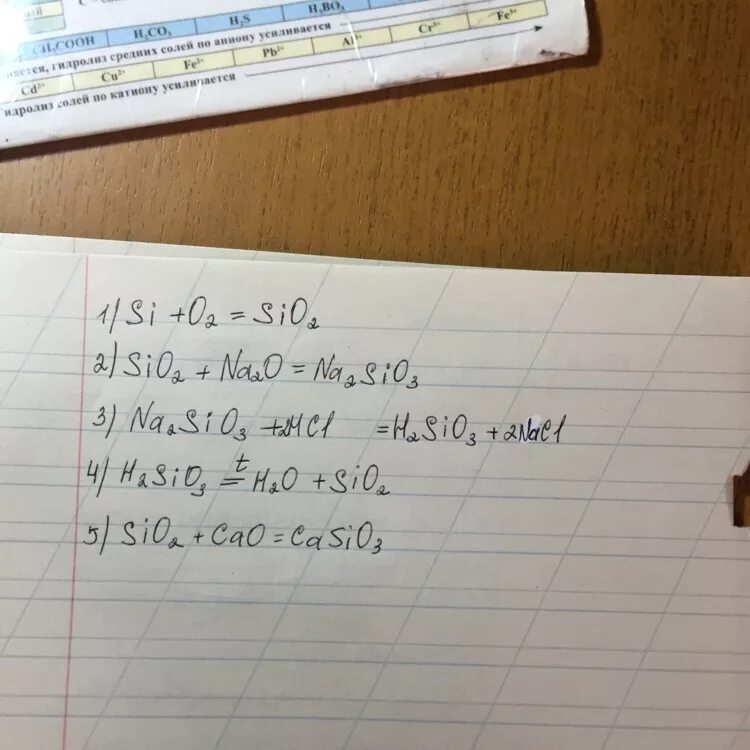 CH₃COOH H₂CO₃ H₂S H₃BO₃
гидролиз средних солей по аниону усиливается
Cd²⁺ Cu²⁺ Fe²⁺ Pb²⁺ Al³⁺ Cr³⁺ Fe³⁺
идролиз солей по катиону усиличается
1) Si + O₂ = SiO₂
2) SiO₂ + Na₂O = Na₂SiO₃
3) Na₂SiO₃ + 2HCl = H₂SiO₃ + 2NaCl
4) H₂SiO₃ =ᵗ H₂O + SiO₂
5) SiO₂ + CaO = CaSiO₃